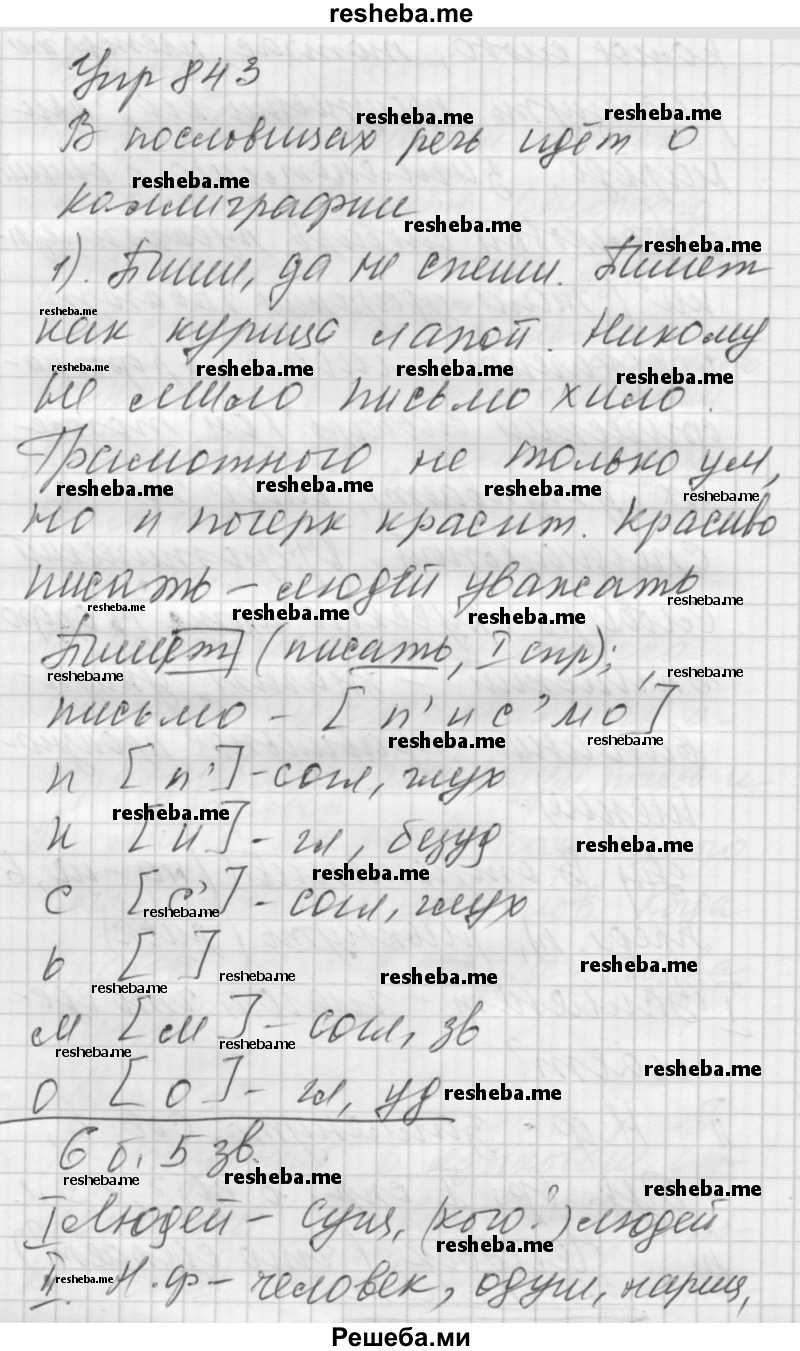 resheba.me
Упр 843
В пословицах речь идёт о
каллиграфии
1). Пиши, да не спеши. Пишет
как курица лапой. Никому
не мило письмо хило.
Грамотного не только ум,
но и почерк красит. Красиво
писать – людей уважать
Пишет (писать, I спр);
письмо – [п'ис'мо]
п [п'] - согл, глух
и [и] - гл, безуд
с [с'] - согл, глух
ь [ ]
м [м] - согл, зв
о [о] - гл, уд
6 б, 5 зв.
I Людей – сущ, (кого?) людей
II. Н.ф – человек, одуш, нариц,
Решеба.ми